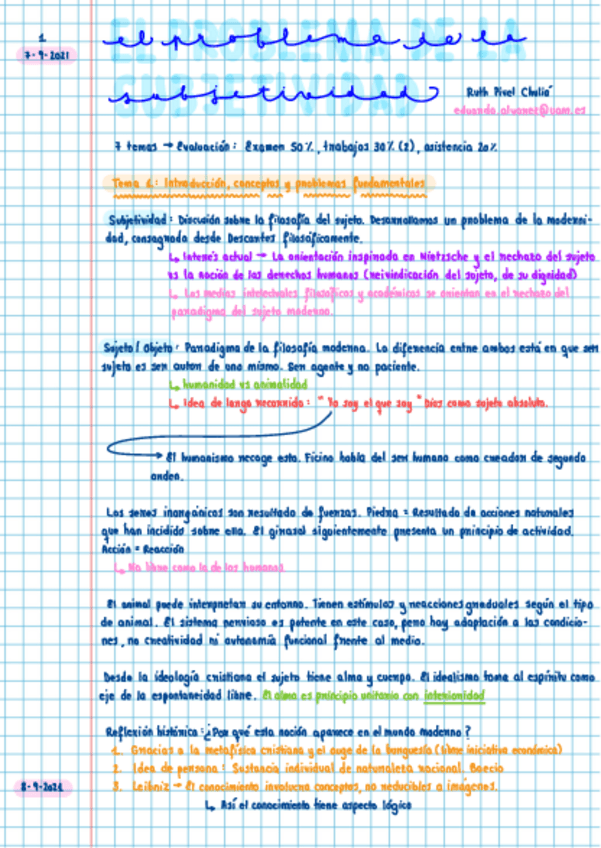 1
7-9-2021
EL PROBLEMA DE LA
el problema de la
SUBJETIVIDAD
subjetividad
Ruth Pivel Chuliá
eduardo.alvarez@uam.es
7 temas → Evaluación: Examen 50%, trabajos 30% (2), asistencia 20%
Tema 1: Introducción, conceptos y problemas fundamentales
Subjetividad: Discusión sobre la filosofía del sujeto. Desarrollamos un problema de la moderni-
dad, consagrada desde Descartes filosóficamente.
↳ Interés actual → La orientación inspirada en Nietzsche y el rechazo del sujeto
vs la noción de los derechos humanos (reivindicación del sujeto, de su dignidad)
↳ Los medios intelectuales filosóficos y académicos se orientan en el rechazo del
paradigma del sujeto moderno.
Sujeto / Objeto: Paradigma de la filosofía moderna. La diferencia entre ambos está en que ser
sujeto es ser autor de uno mismo. Ser agente y no paciente.
↳ humanidad vs animalidad
↳ Idea de largo recorrido: "Yo soy el que soy" Dios como sujeto absoluto.
El humanismo recoge esto. Ficino habla del ser humano como creador de segundo
orden.
Los seres inorgánicos son resultado de fuerzas. Piedra = Resultado de acciones naturales
que han incidido sobre ella. El girasol siguientemente presenta un principio de actividad.
Acción = Reacción
↳ No libre como la de los humanos
El animal puede interpretar su entorno. Tienen estímulos y reacciones graduales según el tipo
de animal. El sistema nervioso es potente en este caso, pero hay adaptación a las condicio-
nes, no creatividad ni autonomía funcional frente al medio.
Desde la ideología cristiana el sujeto tiene alma y cuerpo. El idealismo toma al espíritu como
eje de la espontaneidad libre. El alma es principio unitario con interioridad
Reflexión histórica: ¿Por qué esta noción aparece en el mundo moderno?
1. Gracias a la metafísica cristiana y el auge de la burguesía (libre iniciativa económica)
2. Idea de persona: Sustancia individual de naturaleza racional. Boecio
8-9-2021
3. Leibniz → El conocimiento involucra conceptos, no reducibles a imágenes.
↳ Así el conocimiento tiene aspecto lógico